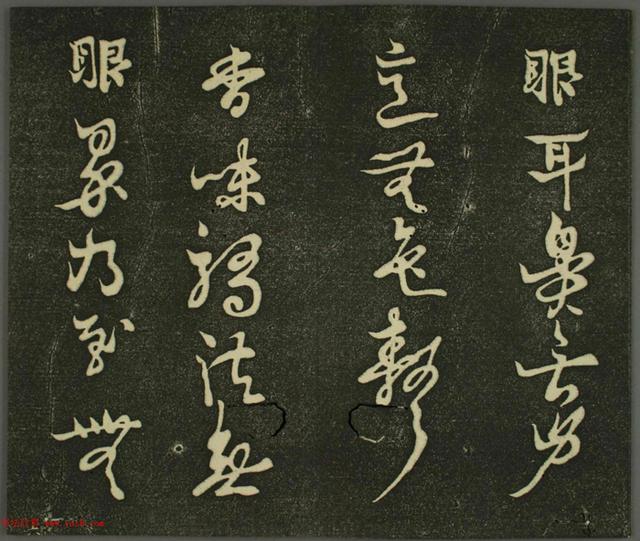 眼耳鼻舌身
意无色聲
香味觸法無
眼界乃至無